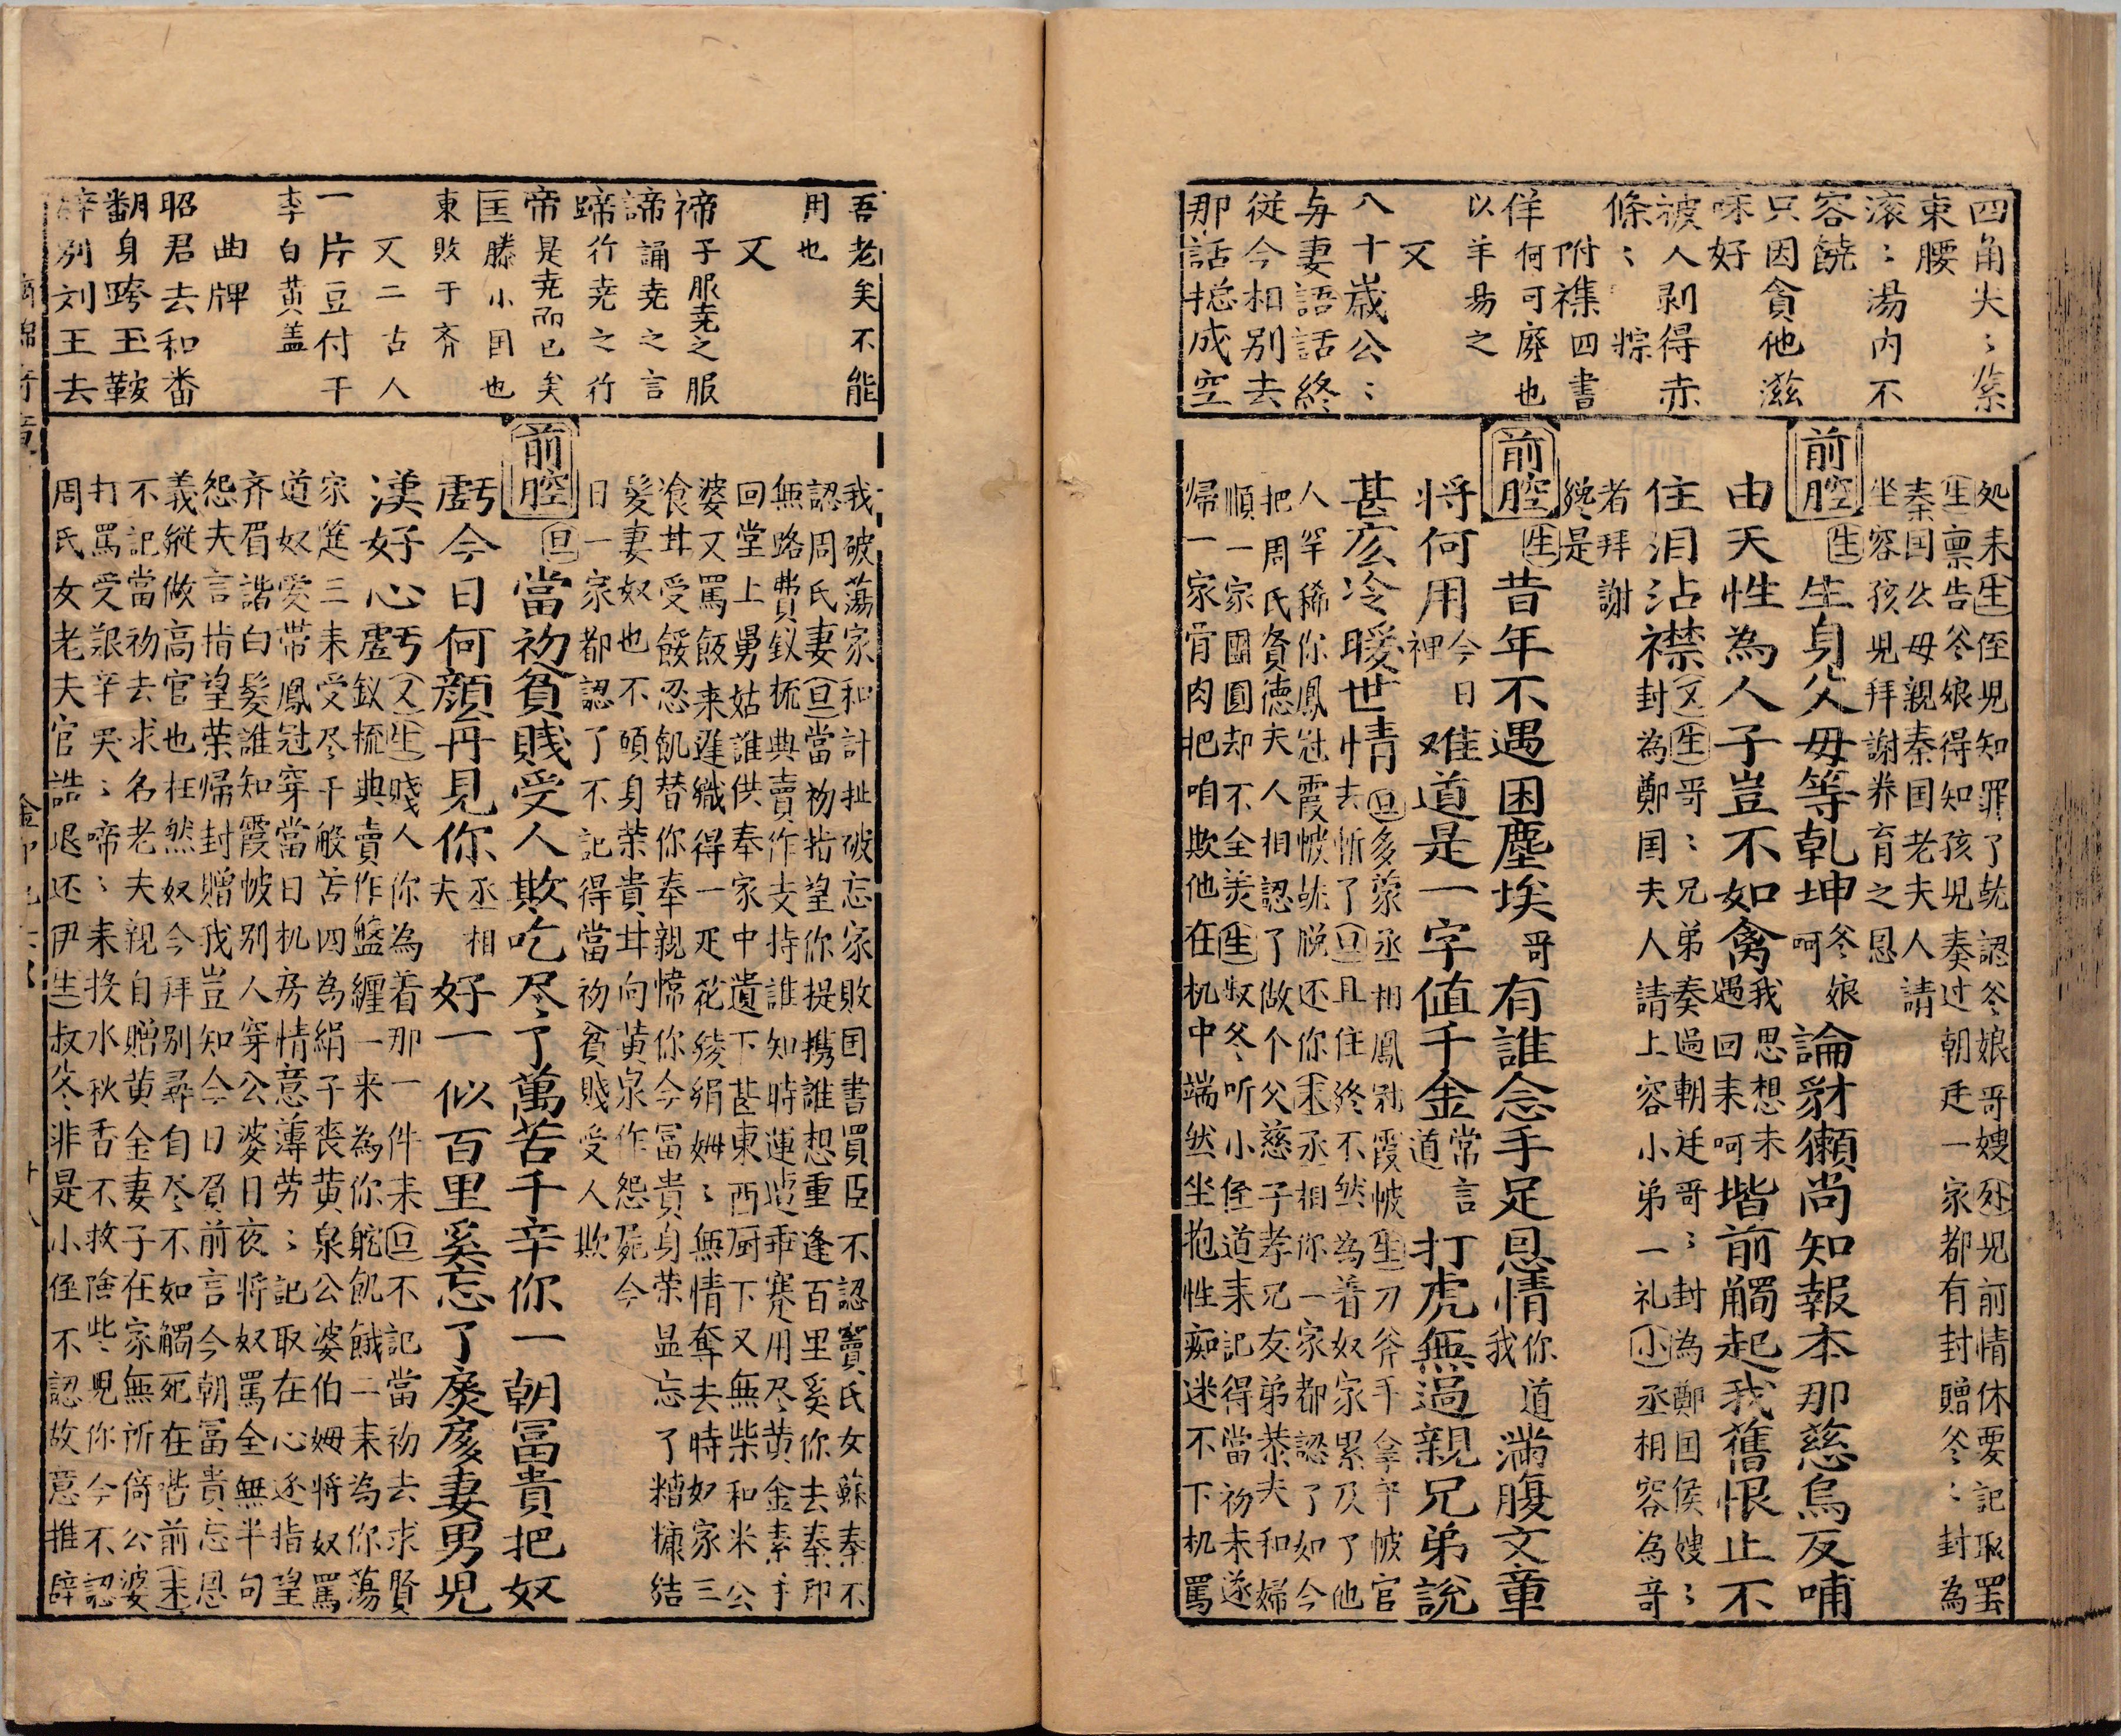 四角尖〻紮
束腰
滚〻湯内不
容饒
只因貪他滋
味好
被人剥得赤
條〻　粽
附襍四書
佯何可廢也
以羊易之
又
八十歲公〻
与妻語話終
從今相別去
那話捴成空
処来生侄児知罪了㐂認爷娘哥嫂外児前情休要記取罢
生禀告爷娘得知孩児奏过朝廷一家都有封贈爷〻封為
秦国公母親秦国老夫人請
坐容孩児拜謝养育之恩
前腔生生身父母等乹坤爷娘呵論豺獺尚知報本那慈烏反哺
由天性為人子豈不如禽我思想未遇回来呵堦前觸起我舊恨止不
住泪沾襟又生哥〻兄弟奏過朝廷哥〻封為鄭国侯嫂〻
封為鄭国夫人請上容小弟一礼小丞相容為哥
者拜謝
纔是
前腔生昔年不遇困塵埃哥有誰念手足恩情你道我満腹文章
将何用今日裡难道是一字值千金常言道打虎無過親兄弟說
甚庅冷暖世情去旦多蒙丞相鳳冠霞帔生刀斧手拿乎帔官
忻了旦且住終不然為着奴家累及了他
人罕稀你鳳冠霞帔㐂脱还你末丞相你一家都認了如今
把周氏賢德夫人相認了做个父慈子孝兄友弟恭夫和婦
順一家團圓却不全羙生叔爷听小侄道来記得當初未遂
帰一家骨肉把咱欺他在机中端然坐抱性痴迷不下机罵
吾老矣不能
用也
又
禘子服尭之服
諦誦尭之言
蹄行尭之行
帝是尭而已矣
匡滕小国也
東敗于齐
又二古人
一片豆付干
李白黄盖
曲牌
昭君去和番
翻身跨玉鞍
辞别刘王去
我破蕩家和計扯破忘家敗国書買臣不認竇氏女蘇秦不
認周氏妻旦當初指望你提携誰想重逢百里奚你去秦印
無路費釵梳典賣作支持誰知時運乖蹇用尽黄金素手
回堂上舅姑誰供奉家中遺下甚東西厨下又無柴和米公
婆又罵飯来遲織得一疋花綾絹姆〻無情奪去時奴家三
飡甘受餒忍飢替你奉親幃你今冨貴身荣显忘了糟糠結
髪妻奴也不頋身荣貴甘向黄泉作怨㞍今
日一家都認了不記得當初貧賤受人欺
前腔旦當初貧賤受人欺吃尽了萬苦千辛你一朝冨貴把奴
虧今日何顔再見你丞相夫好一似百里奚忘了扊扅妻男児
漢好心虚丐又生賤人你為着那一件来旦不記當初去求賢
釵梳典賣作盤纏一来為你躭飢餓二来為你蕩
家筵三来受尽千般苦四為絹子丧黄泉公婆伯姆將奴罵
道奴愛带鳳冠穿當日机房情意薄劳〻記取在心还指望
齐眉諧白髪誰知霞帔別人穿公婆日夜將奴罵全無半句
怨夫言指望荣帰封贈我豈知今日負前言今朝冨貴忘恩
義縱做高官也枉然奴今拜別尋自尽不如觸死在堦前末
不記當初去求名老夫親自贈黄金妻子在家無所倚公婆
打罵受艱辛哭〻啼〻来投水秋香不救險些児你今不認
周氏女老夫官誥退还伊生叔爷非是小侄不認故意推辞